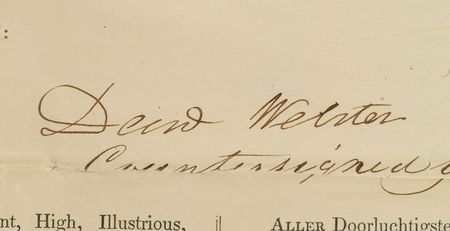 :
Webster
Countersigned
nt, High, Illustrious,
ALLER Doorluchtigste